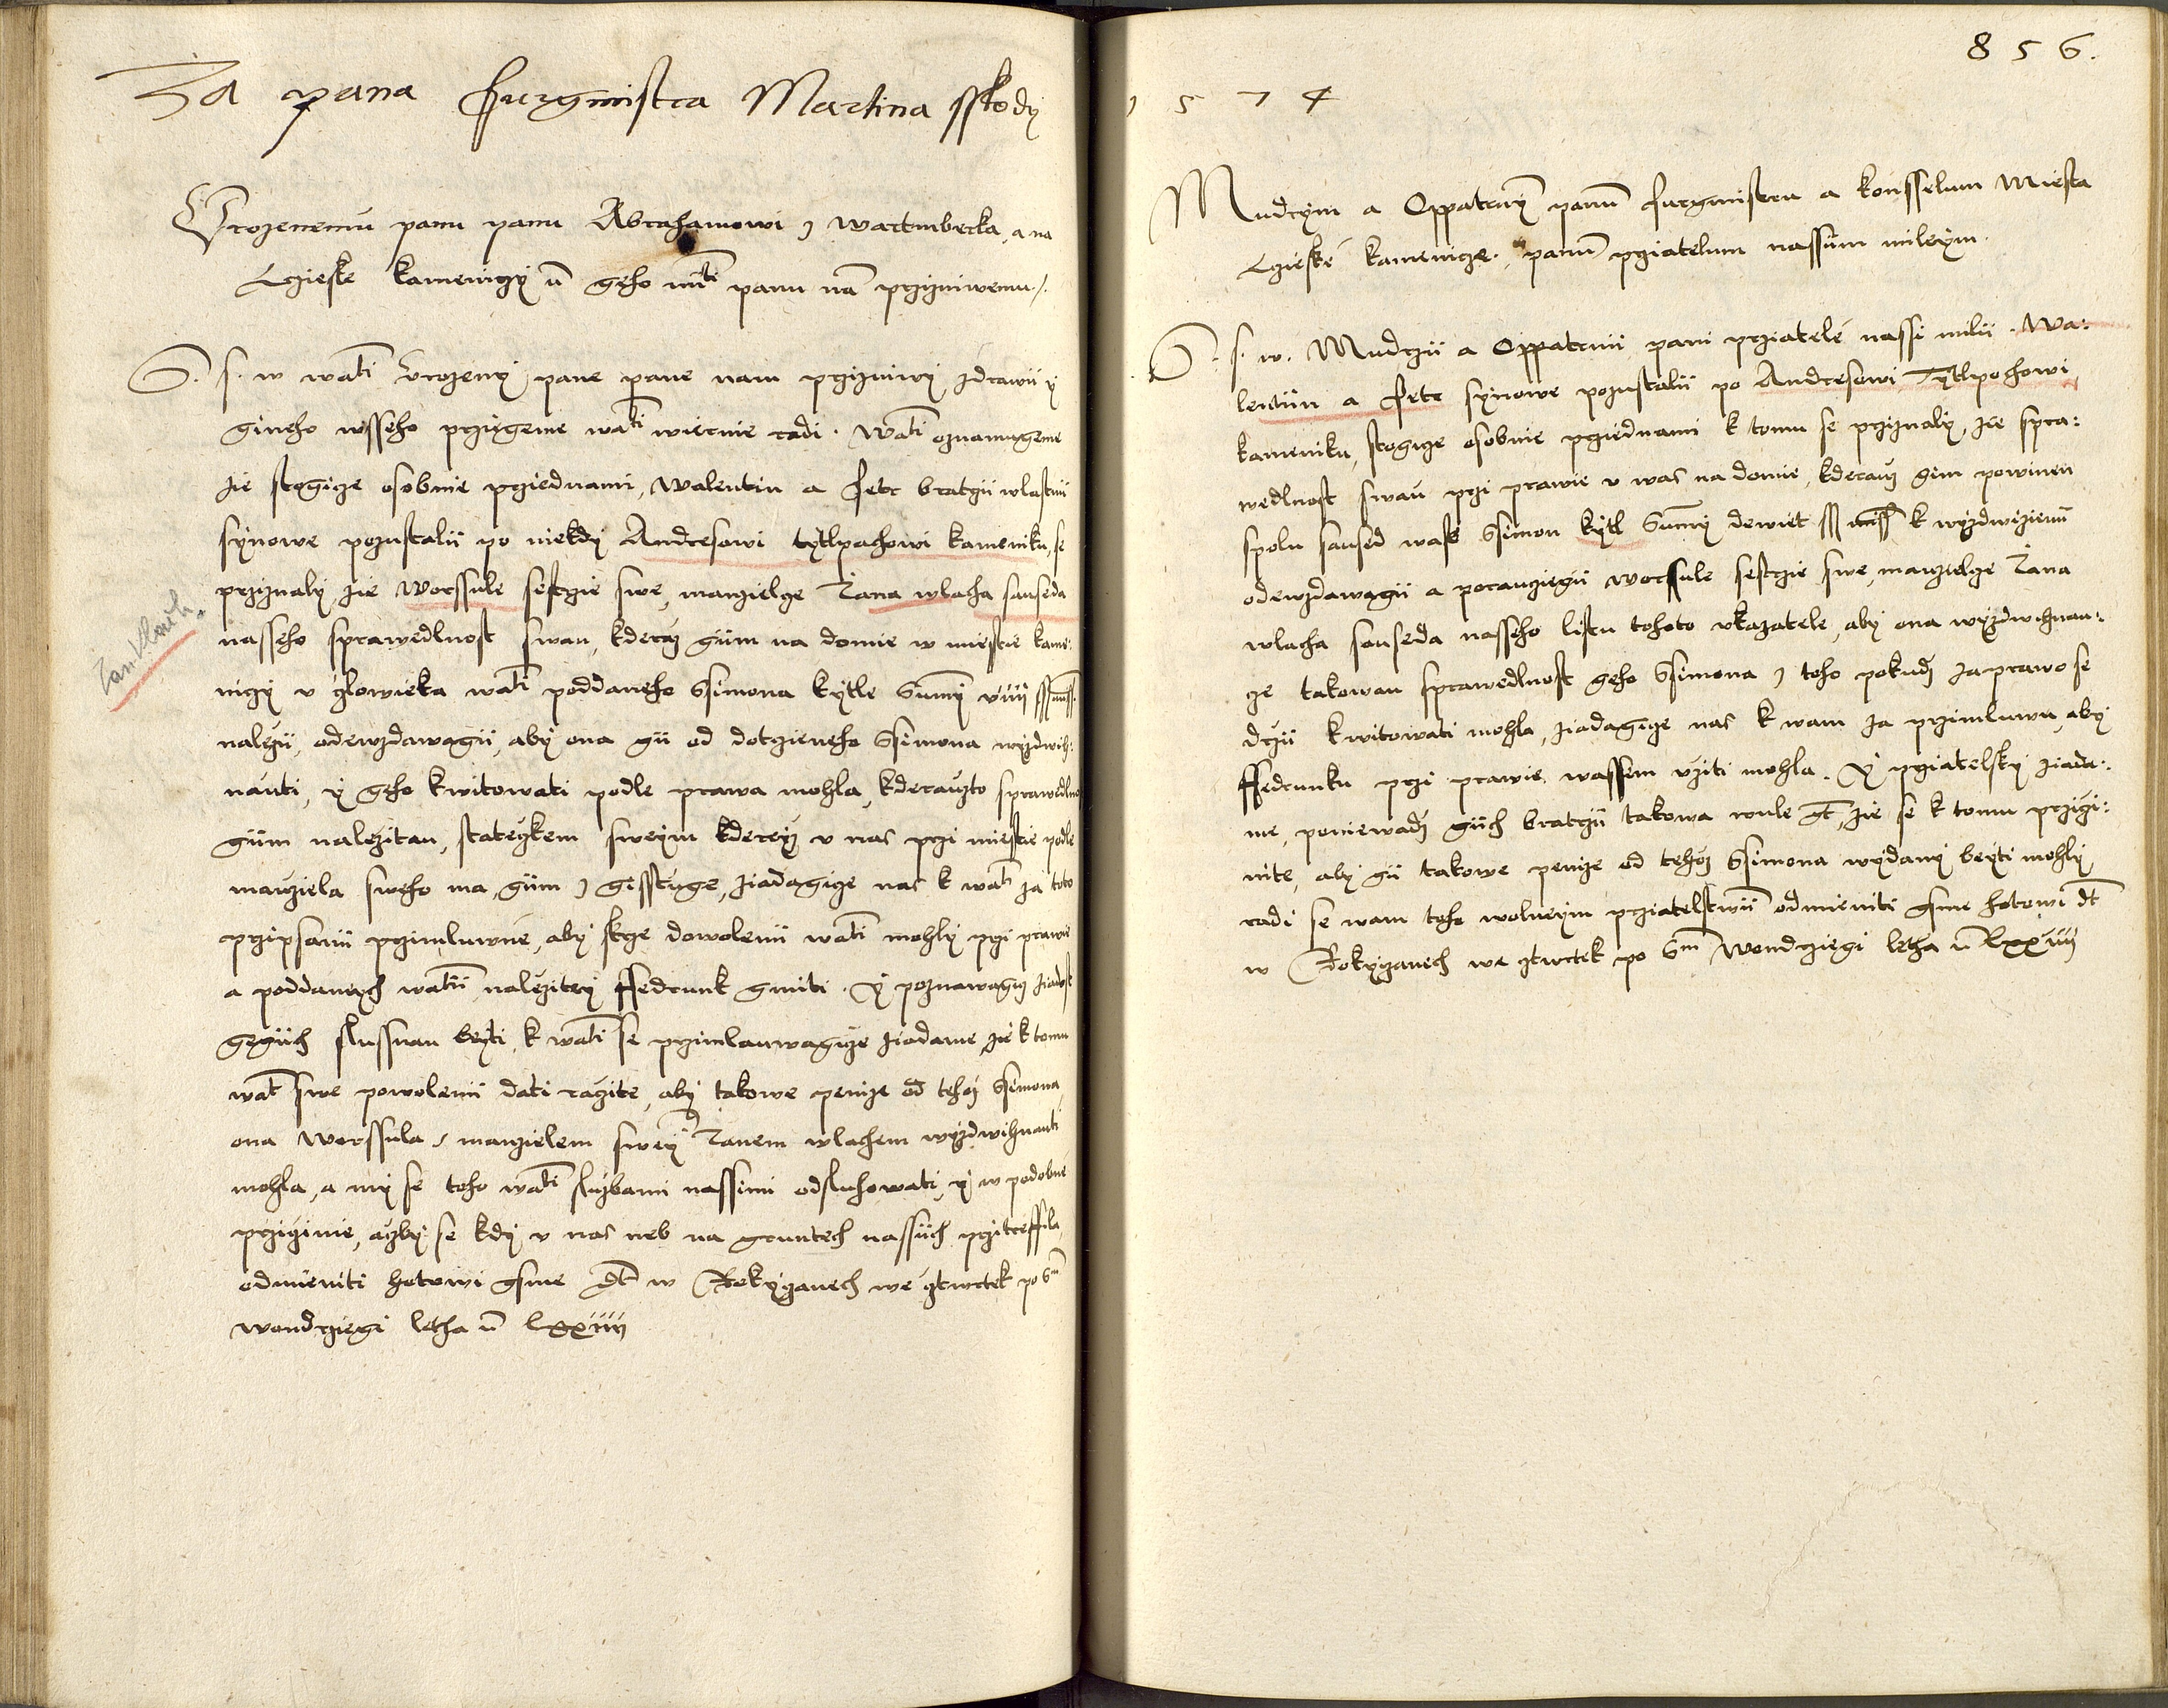 Za pana Purgmistra Martina sskody
Urozenemu panu panu Abrahamowi z wartmberka, a na
Czieske kamenigi ū geho mti panu nā przizniwemu /.
S. s. w wati Urozeny pane pane nam przizniwy zdrawii y
gineho wsseho przigeme wati wiernie radi. Wati oznamugeme
zie stogicze osobnie przied nami, Walentin a Petr bratrzii wlastnii
synowe pozustalii po niekdy Andresowi tytlpachowi kameniku, se
przyznaly zie Worssule sestrzie swe, manzielcze Jana wlacha sauseda
Jan Vlach.
nasseho sprawedlnost swau, kderauz giim na domie w miestie kame:
niczy u czlowieka wati poddaneho Ssimona kytle Summy viiii ss miss.
nalezii, odewzdawagii, aby ona gii od dotczieneho Ssimona wyzdwih:
nauti, y geho kwitowati podle prawa mohla, kderauzto sprawedlno
giim nalezitau, stateczkem sweym kdereyz u nas przi miestie podle
manziela sweho ma, giim z gisstuge, ziadagicze nas k wati za toto
przipsanii przimluwne, aby skrze dowolenii wati mohly przi prawie
a poddanych watii nalezitey ffedrunk gmiti. Y poznawagicz ziadost
gegiich slussnau beyti, k wati se przimlauwagicze ziadame, zie k tomu
wat swe powolenii dati raczite, aby takowe penize od tehoz Ssimona,
ona Worssula, s manzielem sweym Janem wlachem wyzdwihnauti
mohla, a my se toho wati sluzbami nassimi odsluhowati, y w podobne
przicinie, aczby se kdy u nas neb na gruntech nassiich przitreffila,
odmieniti hotowi gsme dt w Rokyczanech we cztwrtek po Sm
wondrziegi letha ū lxxiiii
856.
1574
Mudrym a Oppatrny panū Purgmistru a konsselum Miesta
Czieske kamenicze. panū prziatelum nassim mileym.
S. s. w. Mudrzii a Oppatrnii pani prziatele nassi milii. Wa:
lentiin a Petr synowe pozustalii po Andresowi Tytlpochowi
kameniku, stogicze osobnie przied nami k tomu se przyznaly, zie spra:
wedlnost swau przi prawie u was na domie, kderauz gim powinen
spolu saused wass Ssimon kytl Summy dewiet ss miss k wyzdwizienii
odewzdawagii a porauczegii worssule sestrzie swe, manzielcze Jana
wlacha sauseda nasseho listu tohoto ukazatele, aby ona wyzdwihnau:
cze takowau sprawedlnost geho Ssimona z toho pokudz za prawo se
drzii kwitowati mohla, ziadagicze nas k wam za przimluwu, aby
ffedrunku przi prawie wassem uziti mohla. Y prziatelsky ziada:
me, poniewadz giich bratrzii takowa wule gt, zie se k tomu przici:
nite, aby gii takowe penize od tehoz Ssimona wydany beyti mohly
radi se wam toho wolneym prziatelstwiim odmieniti gsme hotowi dt
w Rokyczanech we cztwrtek po Sm Wondrziegi letha ū lxxiiii